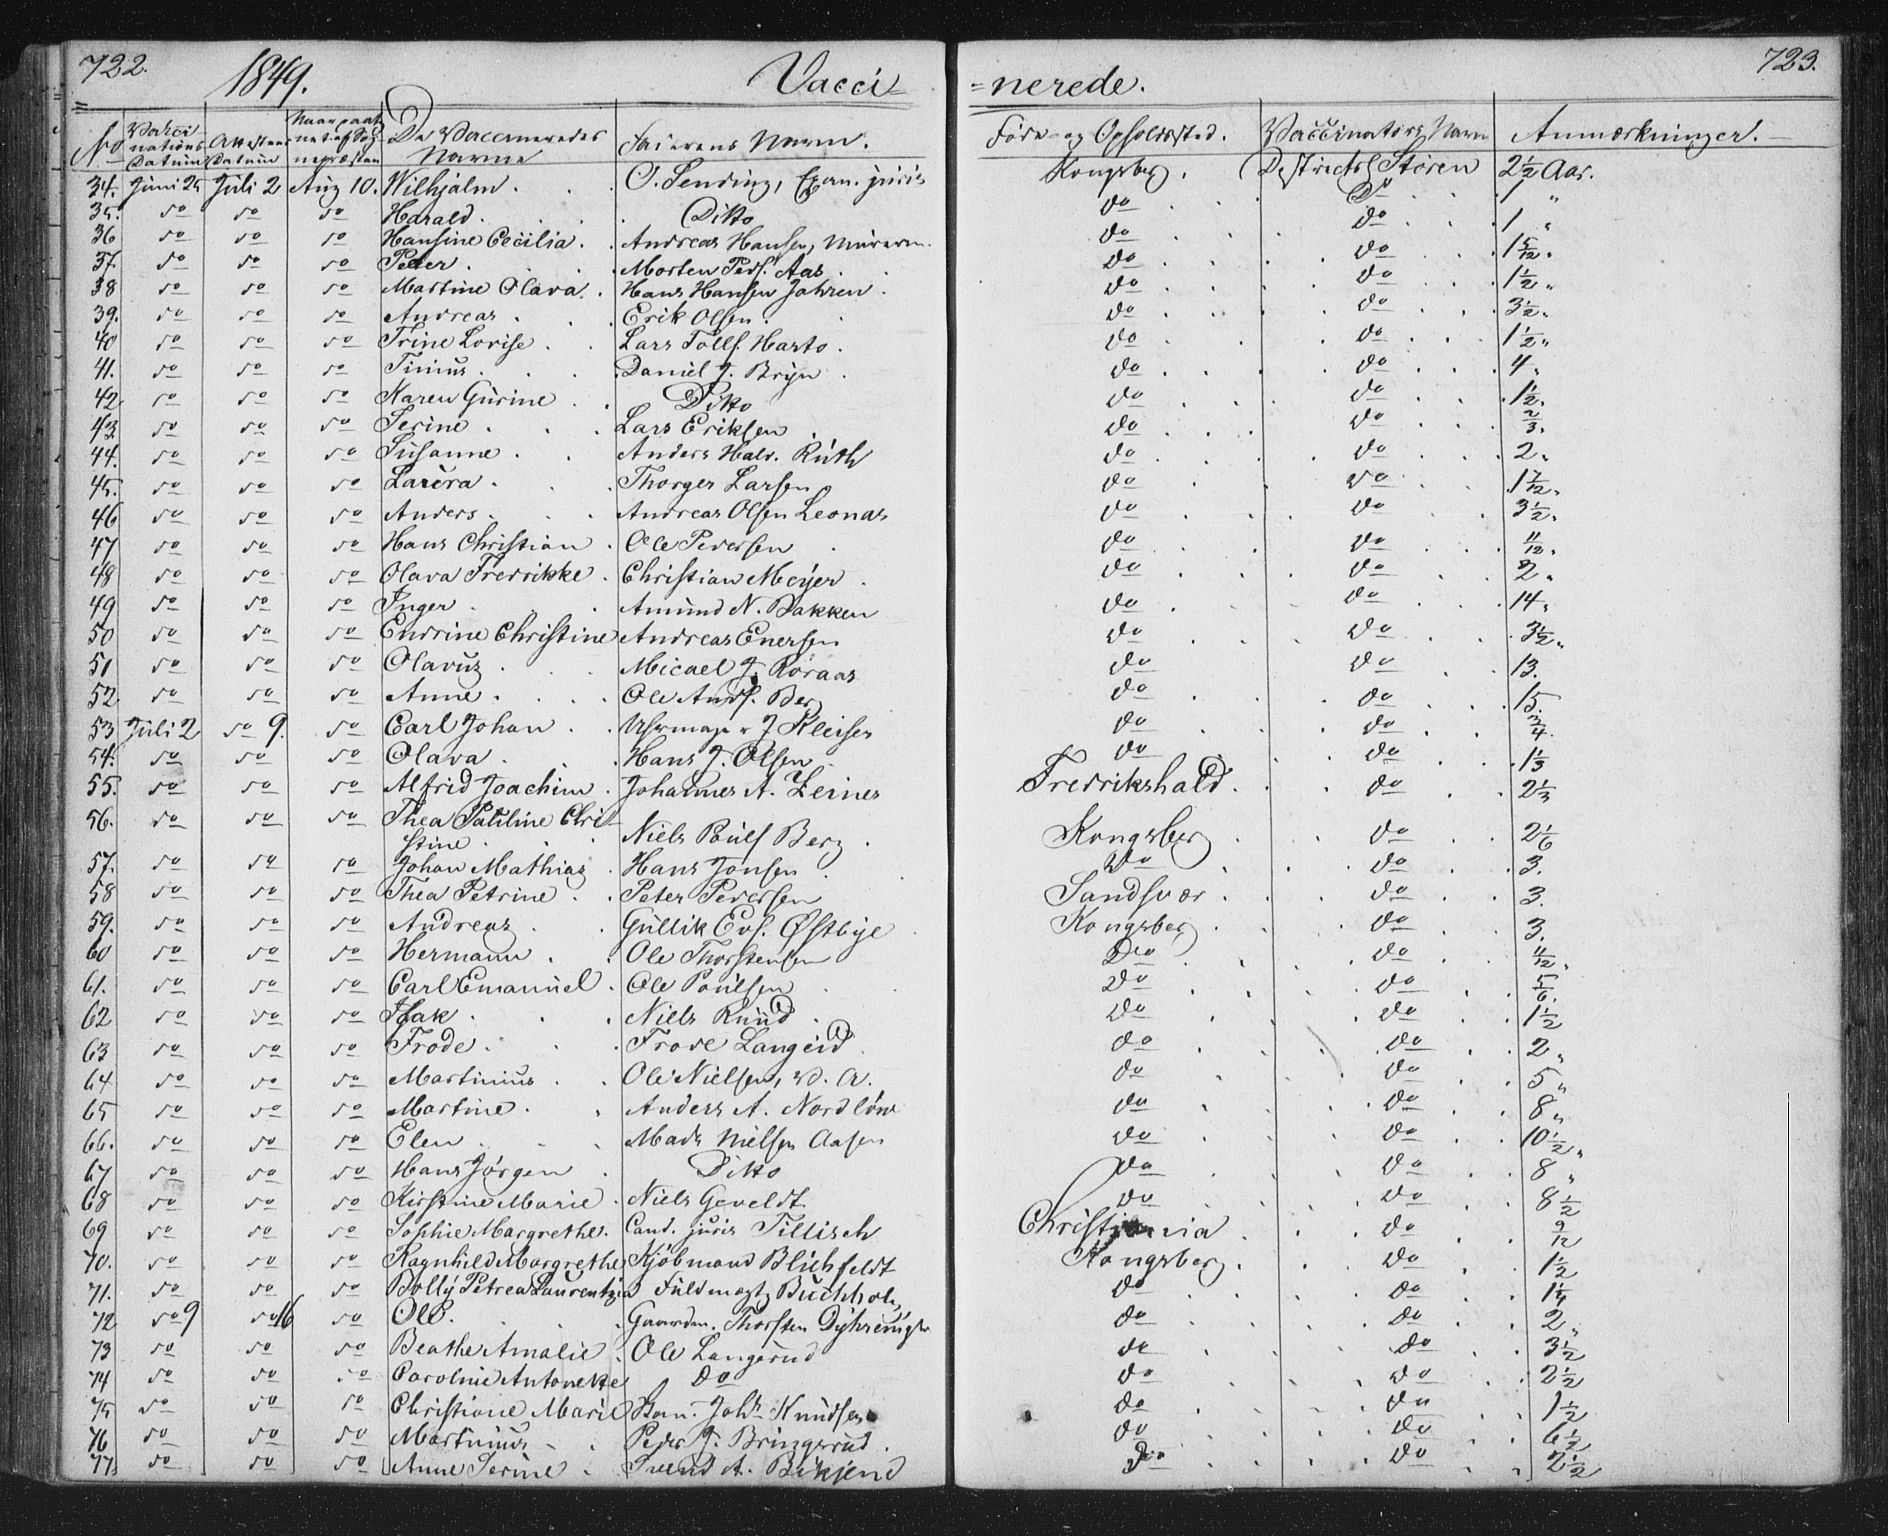 722.
1849.
Vacci-
-nerede.
723.
No Vacci-nations Datum Attestens Datum Naar paateg-net af Sog-nepræsten De Vaccineredes Navne Faderens Navn. Føde- og Opholdssted. Vaccinators Navn Anmærkninger.
34. Juni 25 Juli 2 Aug 10. Wilhjalm. O. Sending, Exam. juris Kongsberg. Districts Støren 2½ Aar.
35. do do do Harald. Ditto do Do 1 "
36 do do do Hansine Cecilia. Andreas Hansen, Murerm. do do 1 "
37. do do do Peter. Morten Peds. Aas do do 1 5/12 "
38 do do do Martine Olava. Hans Hansen Jahren do do 1½ "
39. do do do Andreas Erik Olsen. do do 3½ "
40 do do do Trine Lovise. Lars Tolls. Harto. do do 1½ "
41. do do do Tinius. Daniel J. Bryn do do 4 "
42 do do do Karen Gurine Ditto do do 1½ "
43 do do do Serine Lars Eriksen do do 2/3 "
44. do do do Susanne Anders Halv. Ruth do do 2 "
45. do do do Laura. Thorger Larsen do do 1 7/12 "
46 do do do Anders. Andreas Olsen Leonas do do 3½ "
47 do do do Hans Christian Ole Pedersen do do 11/12 "
48 do do do Olava Fredrikke. Christian Meyer do do 2 "
49 do do do Inger. Amund N. Bakken do do 14 "
50 do do do Endrine Christine Andreas Enersen do do 3½ "
51 do do do Olavus Micael J. Røraas do do 13.
52 do do do Anne. Ole Ands. Berg do do 15.
53 Juli 2 do 9. do Carl Johan Uhrmager J Kleiser do do 3/4.
54. do do do Olava Hans J. Olsen do do 1 1/3
55. do do do Alfrid Joachim. Johannes A. Zeiner Fredrikshald. do 2 1/3
56. do do do Thea Pauline Chri-
stine. Niels Pouls Berg Kongsberg do 2 1/6
57. do do do Johan Mathias Hans Jonsen Do do 3.
58 do do do Thea Petrine Peter Pedersen Sandsvær. do 3.
59. do do do Andreas Gullik Evs. Østbye Kongsberg do 3.
60 do do do Hermann Ole Thorstensen Do do 11/12 "
61. do do do Carl Emanuel Ole Poulsen do do 5/6.
62 do do do Isak Niels Ruud do do 1½
63 do do do Frode. Frode Langeid do do 2 "
64 do do do Martinius Ole Nielsen, v. A. do do 5 "
65 do do do Martine. Anders A. Nordløw do do 8 "
66. do do do Elen Mads Nielsen Aasen do do 10½ "
67 do do do Hans Jørgen Ditto do do 8 "
68 do do do Kirstine Marie Niels Geveldt do do 8½
69 do do do Sophie Margrethe. Cand. juris Tillisch Christiania do 9/12
70. do do do Ragnhild Margrethe Kjøbmand Blichfeldt Kongsberg do 1½
71. do do do Bolly Petrea Laurentzia Fuldmægt Buchholz do do 1¼
72 do 9 do 16 do Ole. Gaardm. Thorsten do do 2 "
73 do do do Beathe Amalie Ole Langerud do do 3½
74 do do do Caroline Antonette do do do 2½
75 do do do Christiane Marie Joh. Knudsen do do 1½
76 do do do Martinius Peder J. Bringerud. do do 6½
77. do do do Anne Serine Svend A. Bikjend Do do 2½